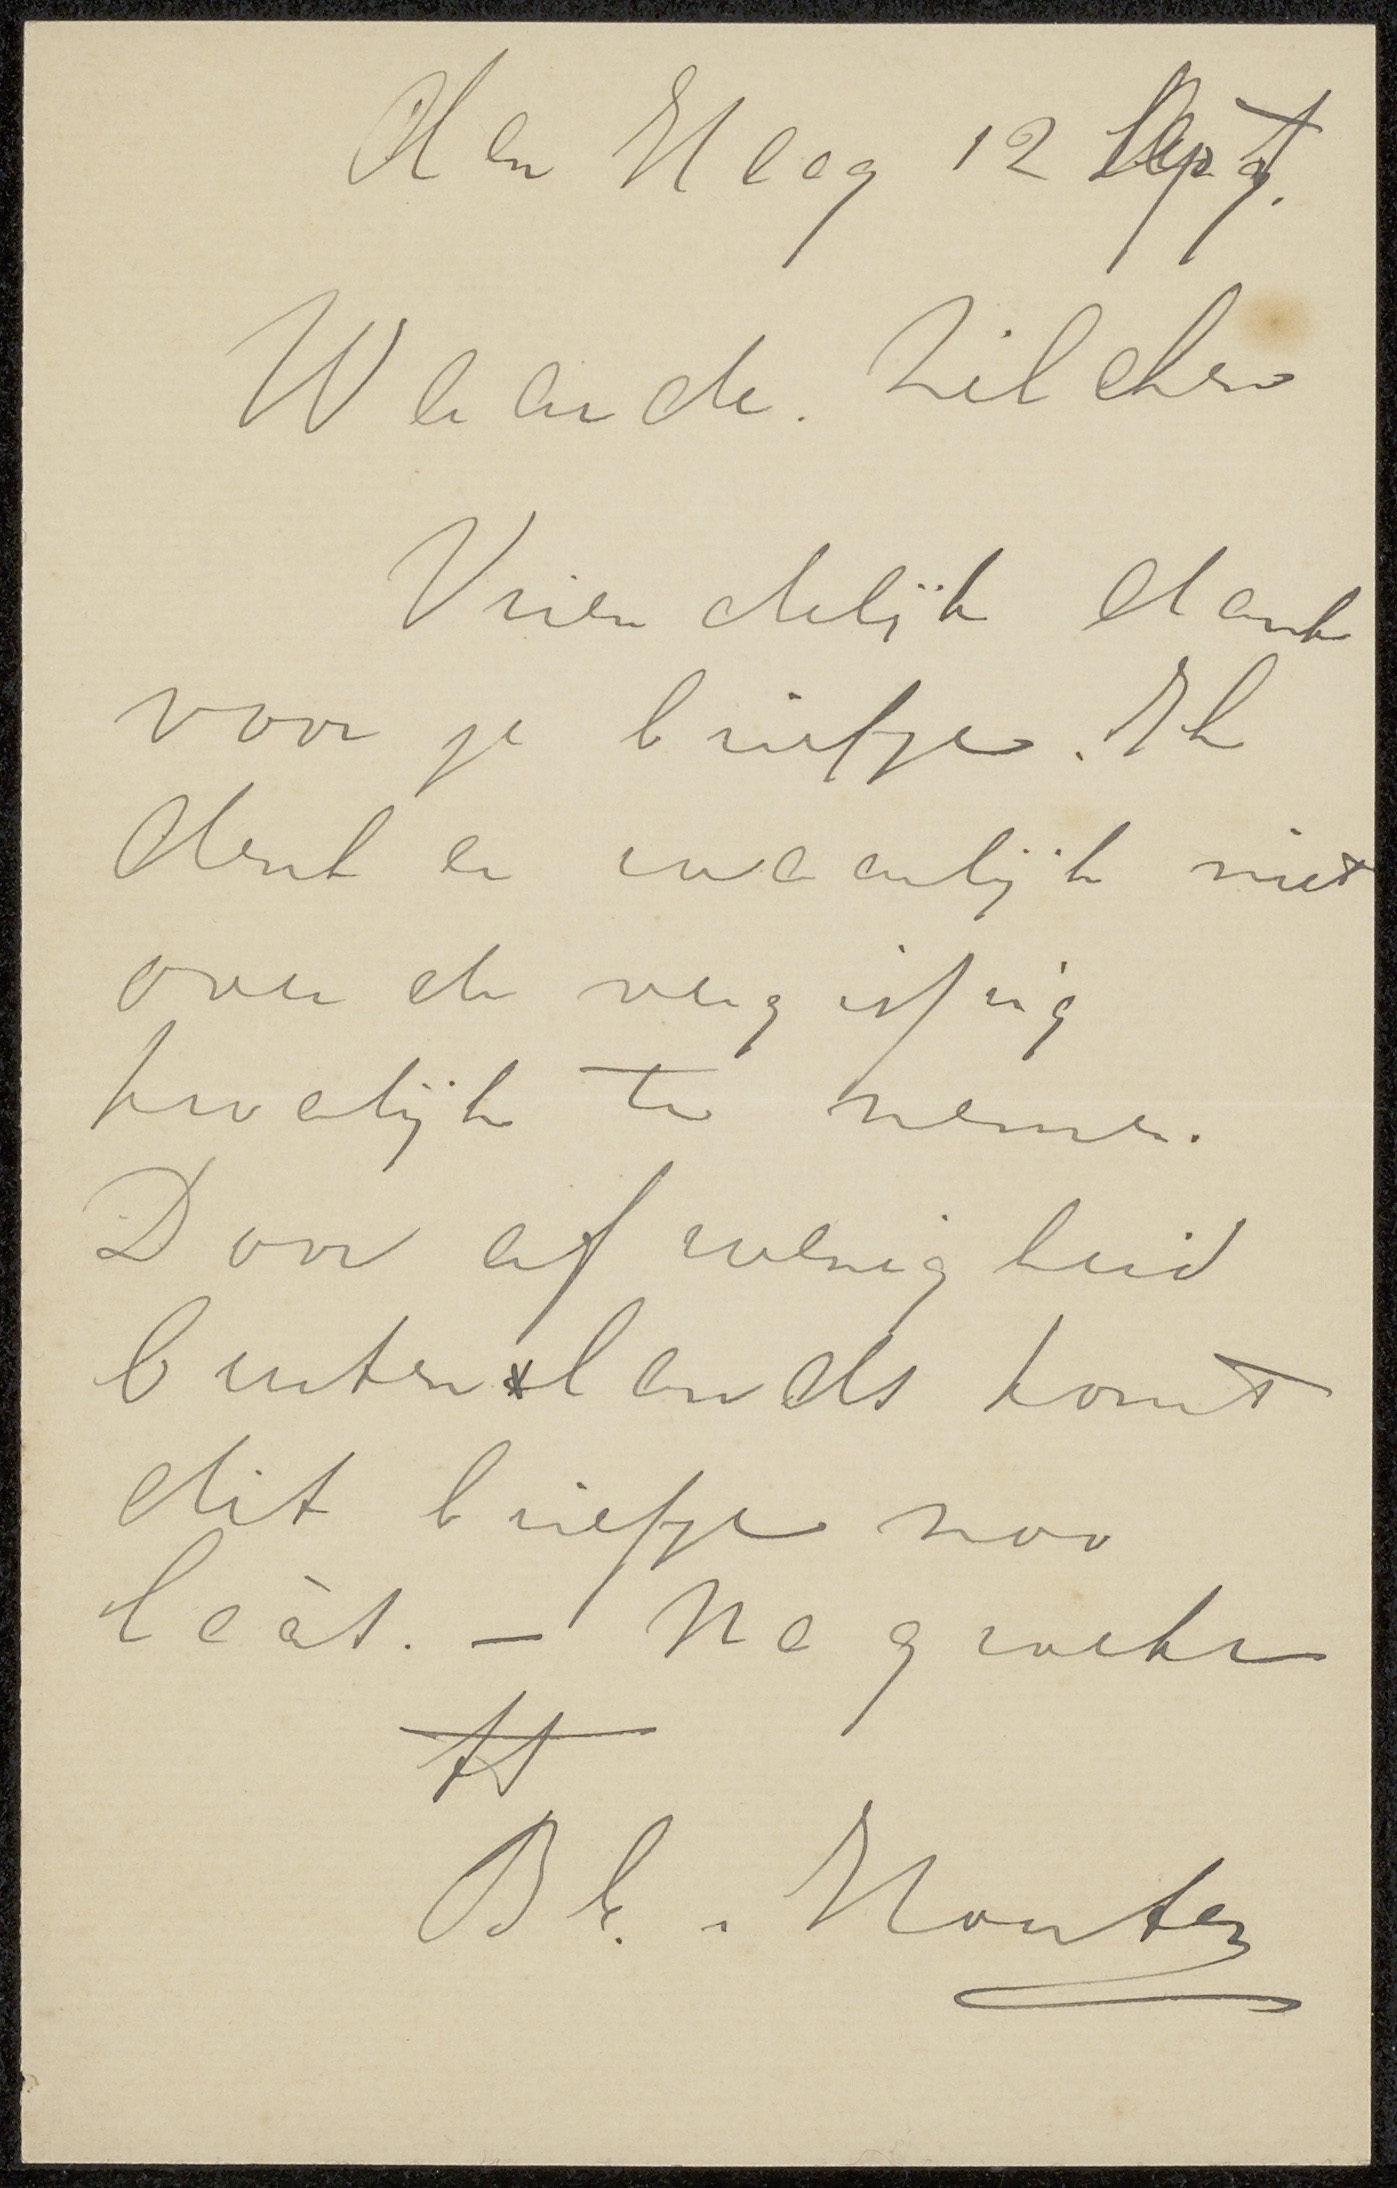 den Haag 12 Sept.
Waarde. Zilcken
Vriendelijk dank
voor je briefje. Ik
denk er waarlijk niet
over de vergissing
kwalijk te nemen.
Door afwezigheid
buitenlands komt
dit briefje zoo
laat. — Na groete
tt
Bl. Houten